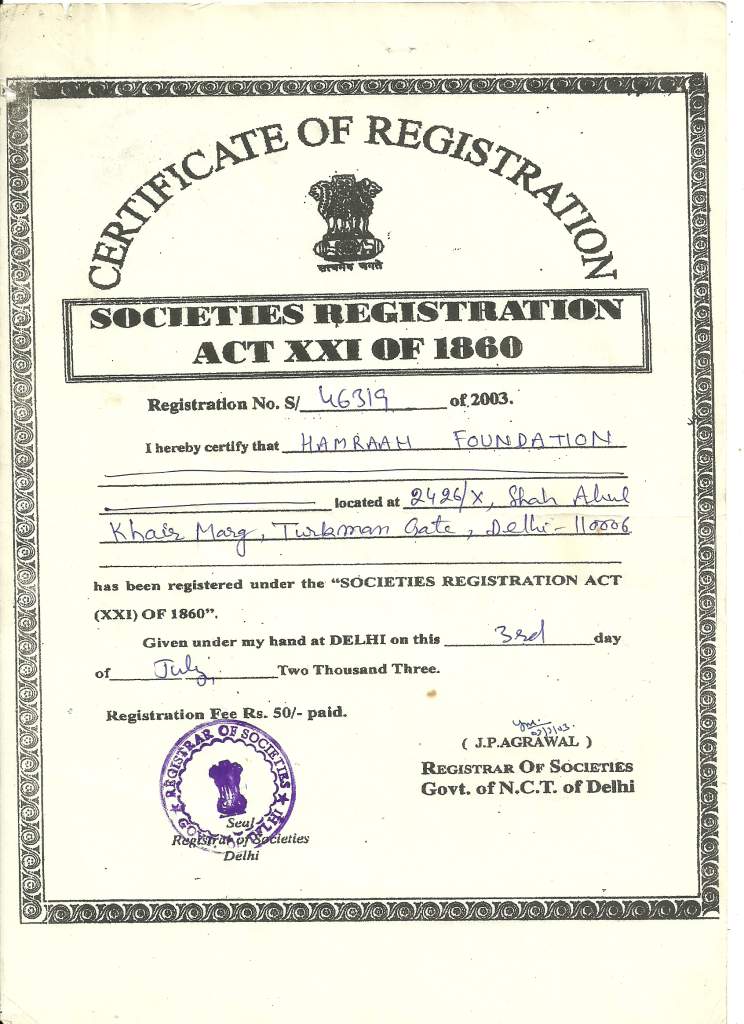 CERTIFICATE OF REGISTRATION
सत्यमेव जयते
SOCIETIES REGISTRATION
ACT XXI OF 1860
Registration No. S/ 46319 of 2003.
I hereby certify that HAMRAAH FOUNDATION
located at 2426/X, Shah Abul
Khair Marg, Turkman Gate, Delhi-110006
has been registered under the “SOCIETIES REGISTRATION ACT
(XXI) OF 1860”.
Given under my hand at DELHI on this 3rd day
of July, Two Thousand Three.
Registration Fee Rs. 50/- paid.
( J.P.AGRAWAL )
REGISTRAR OF SOCIETIES
Govt. of N.C.T. of Delhi
REGISTRAR OF SOCIETIES
DELHI
Seal
Registrar of Societies
Delhi